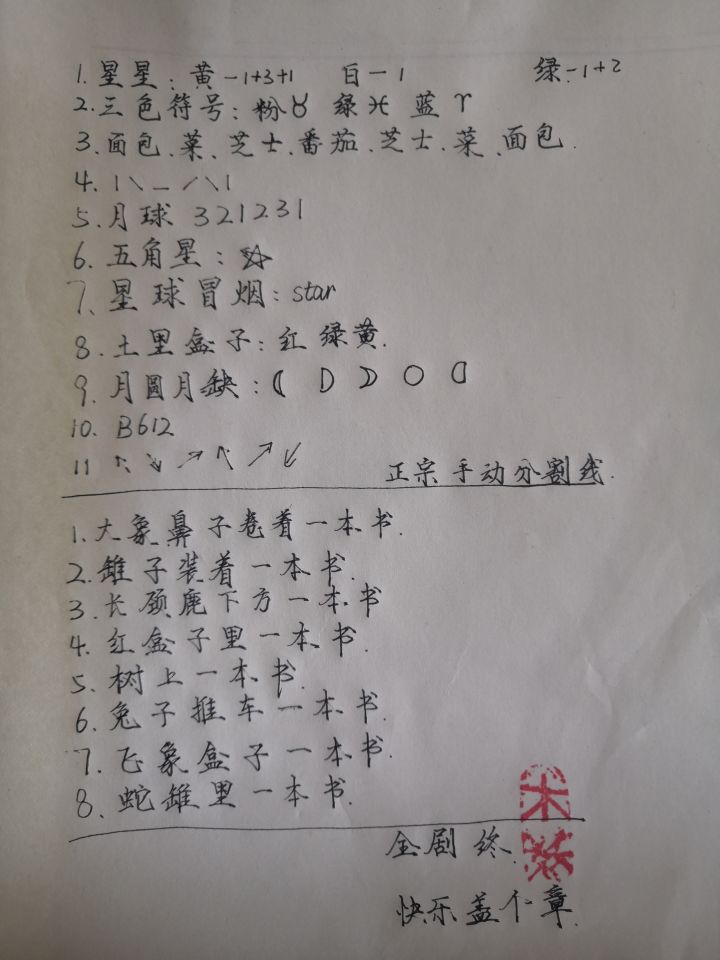 1. 星星：黄-1+3+1 白-1 绿-1+2
2. 三色符号：粉♉ 绿♓ 蓝♈
3. 面包、菜、芝士、番茄、芝士、菜、面包.
4. | \ — / \ |
5. 月球 321231
6. 五角星：☆
7. 星球冒烟：star
8. 土里盒子：红绿黄.
9. 月圆月缺：
10. B612
11 ↖ ↘ ↗ ↖ ↗ ↙ 正宗手动分割线.
1. 大象鼻子卷着一本书.
2. 罐子装着一本书.
3. 长颈鹿下方一本书
4. 红盒子里一本书.
5. 树上一本书.
6. 兔子推车一本书.
7. 飞象盒子一本书.
8. 蛇罐里一本书.
全剧终.
快乐盖个章.